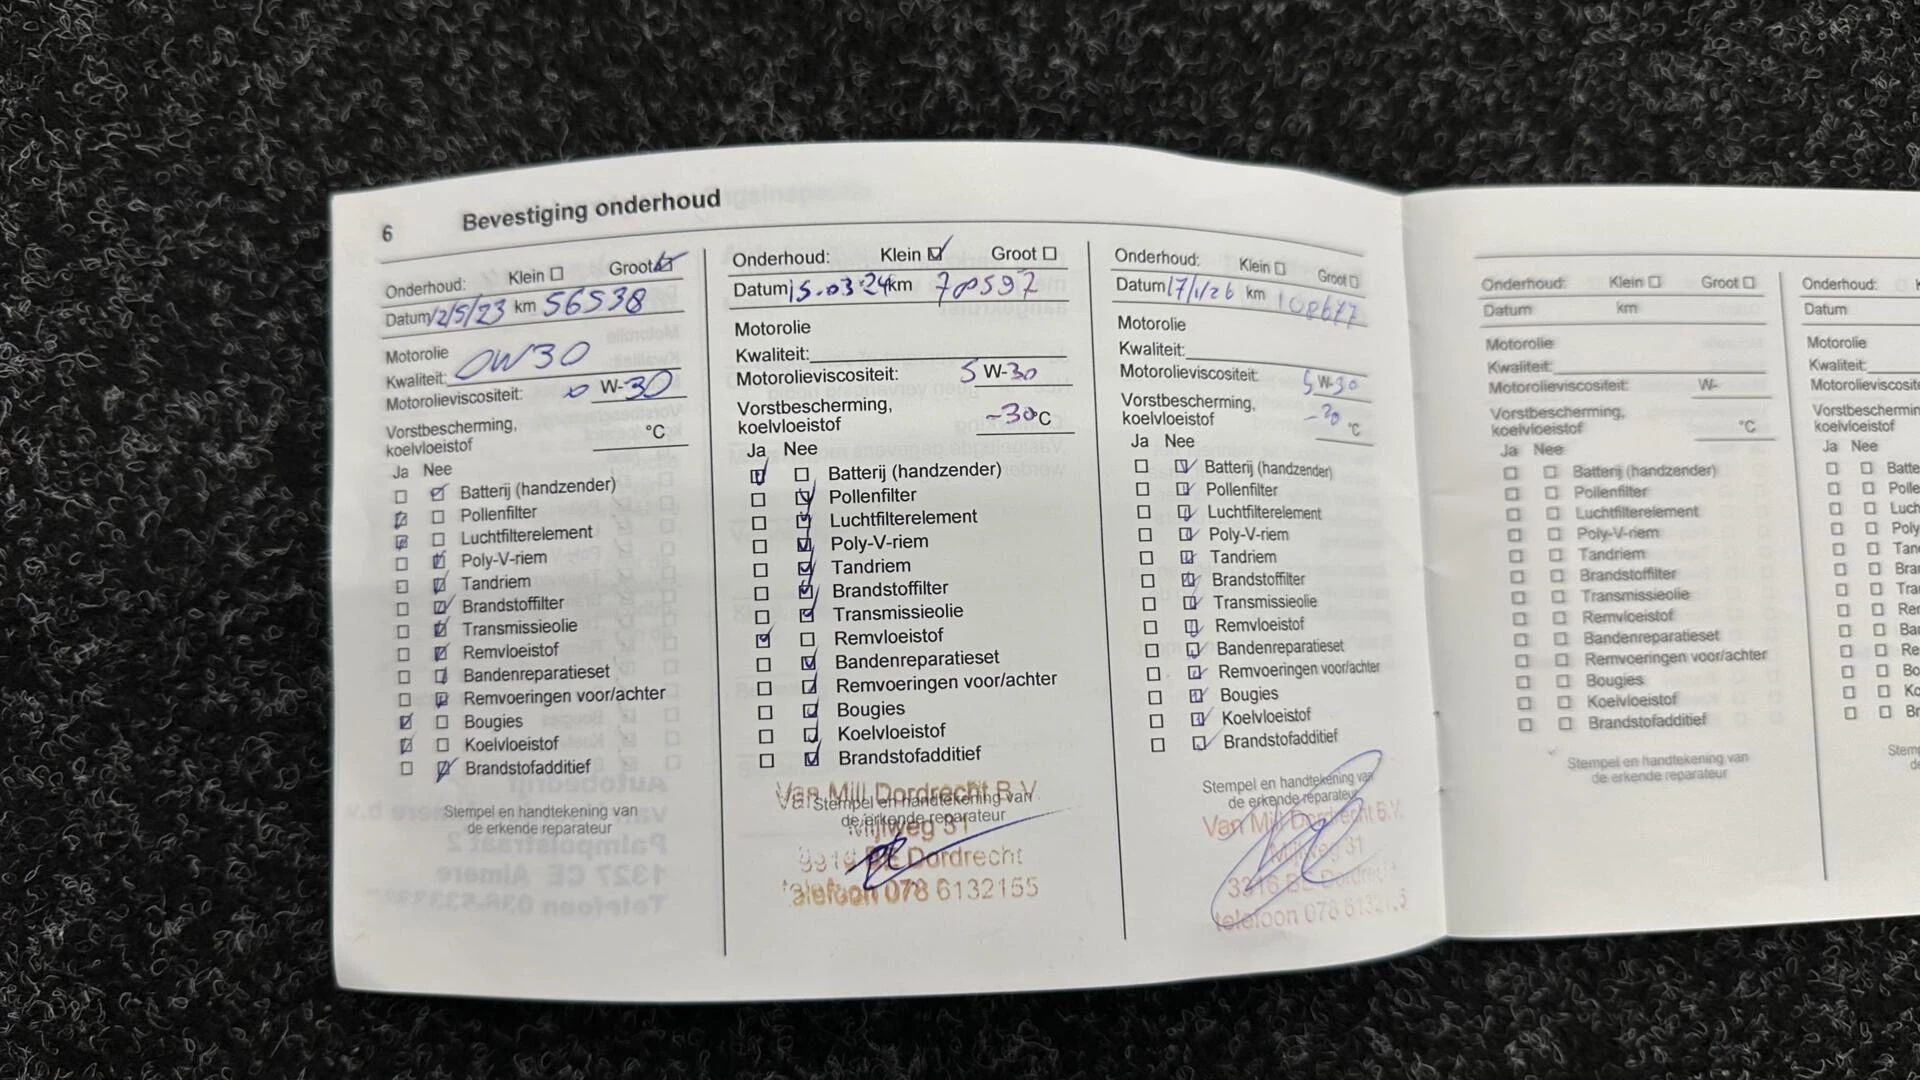 6 Bevestiging onderhoud
Onderhoud: Klein Groot
Datum 12/5/23 km 56538
Motorolie
Kwaliteit: 0W30
Motorolieviscositeit: 0 W-30
Vorstbescherming,
koelvloeistof °C
Ja Nee
Batterij (handzender)
Pollenfilter
Luchtfilterelement
Poly-V-riem
Tandriem
Brandstoffilter
Transmissieolie
Remvloeistof
Bandenreparatieset
Remvoeringen voor/achter
Bougies
Koelvloeistof
Brandstofadditief
Stempel en handtekening van
de erkende reparateur
Onderhoud: Klein Groot
Datum 15.03.24 km 70597
Motorolie
Kwaliteit:
Motorolieviscositeit: 5 W-30
Vorstbescherming,
koelvloeistof -30 °C
Ja Nee
Batterij (handzender)
Pollenfilter
Luchtfilterelement
Poly-V-riem
Tandriem
Brandstoffilter
Transmissieolie
Remvloeistof
Bandenreparatieset
Remvoeringen voor/achter
Bougies
Koelvloeistof
Brandstofadditief
Van Mill Dordrecht B.V.
Stempel en handtekening van
de erkende reparateur
Mijlweg 31
Dordrecht
telefoon 078 6132155
Onderhoud: Klein Groot
Datum 17/1/26 km 108677
Motorolie
Kwaliteit:
Motorolieviscositeit: 5 W-30
Vorstbescherming,
koelvloeistof -30 °C
Ja Nee
Batterij (handzender)
Pollenfilter
Luchtfilterelement
Poly-V-riem
Tandriem
Brandstoffilter
Transmissieolie
Remvloeistof
Bandenreparatieset
Remvoeringen voor/achter
Bougies
Koelvloeistof
Brandstofadditief
Stempel en handtekening van
de erkende reparateur
Van Mill Dordrecht B.V.
Mijlweg 31
3316 BE Dordrecht
telefoon 078 6132155
Onderhoud: Klein Groot
Datum km
Motorolie
Kwaliteit:
Motorolieviscositeit: W-
Vorstbescherming,
koelvloeistof °C
Ja Nee
Batterij (handzender)
Pollenfilter
Luchtfilterelement
Poly-V-riem
Tandriem
Brandstoffilter
Transmissieolie
Remvloeistof
Bandenreparatieset
Remvoeringen voor/achter
Bougies
Koelvloeistof
Brandstofadditief
Stempel en handtekening van
de erkende reparateur
Onderhoud: K
Datum
Motorolie
Kwaliteit:
Motorolieviscosite
Vorstbeschermin
koelvloeistof
Ja Nee
Batte
Polle
Luch
Poly
Tan
Bra
Tra
Re
Ba
Re
Bo
Ko
Br
Stem
de